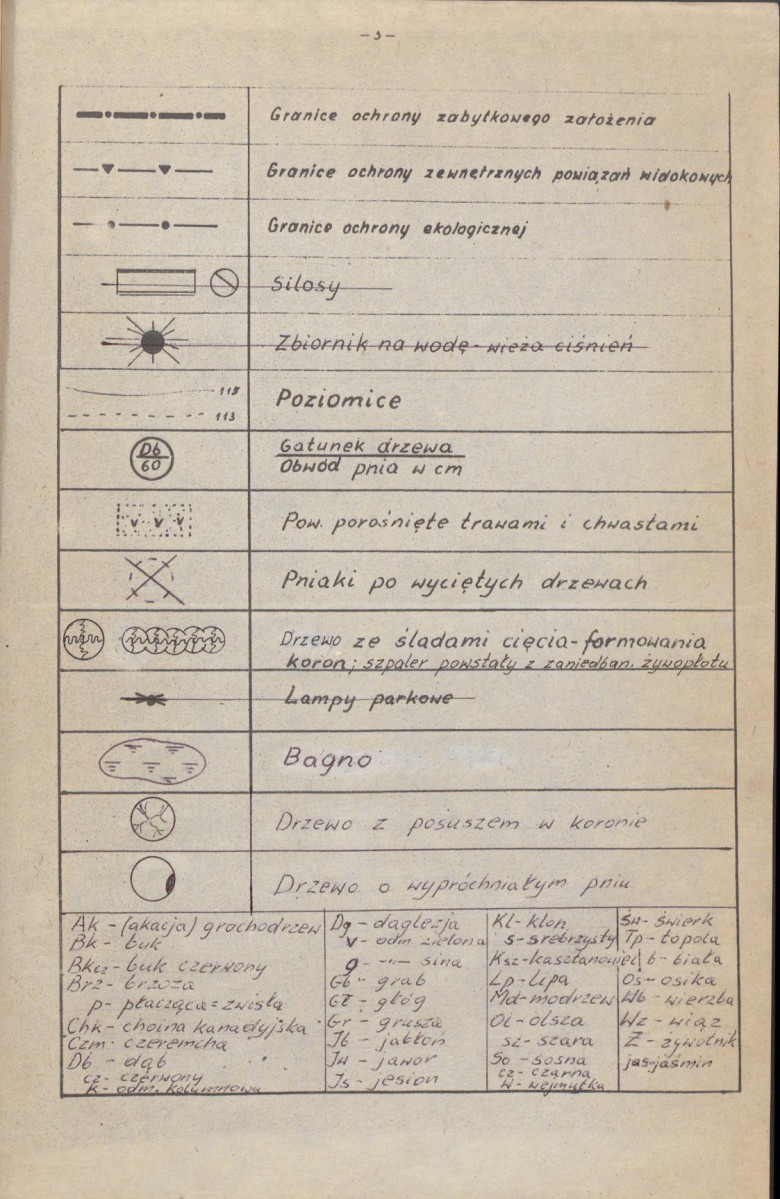 - 3 -
Granice ochrony zabytkowego założenia
Granice ochrony zewnętrznych powiązań widokowych
Granice ochrony ekologicznej
Silosy
Zbiornik na wodę - wieża ciśnień
115
113
Poziomice
Db
60
Gatunek drzewa
Obwód pnia w cm
v v v
Pow. porośnięte trawami i chwastami
Pniaki po wyciętych drzewach
Drzewo ze śladami cięcia - formowania
koron; szpaler powstały z zaniedban. żywopłotu
Lampy parkowe
Bagno
Drzewo z posuszem w koronie
Drzewo o wypróchniałym pniu
Ak - (akacja) grochodrzew
Bk - buk
Bkcz - buk czerwony
Brz - brzoza
p - płacząca = zwisła
Chk - choina kanadyjska
Czm - czeremcha
Db - dąb
cz - czerwony
k - odm. kolumnowa
Dg - daglezja
v - odm. zielona
g - -"- sina
Gb - grab
Gł - głóg
Gr - grusza
Jb - jabłoń
Jw - jawor
Js - jesion
Kl - klon
s - srebrzysty
Ksz - kasztanowiec
Lp - lipa
Md - modrzew
Ol - olsza
sz - szara
So - sosna
cz - czarna
w - wejmutka
Św - świerk
Tp - topola
b - biała
Os - osika
Wb - wierzba
Wz - wiąz
Ż - żywotnik
jaś - jaśmin